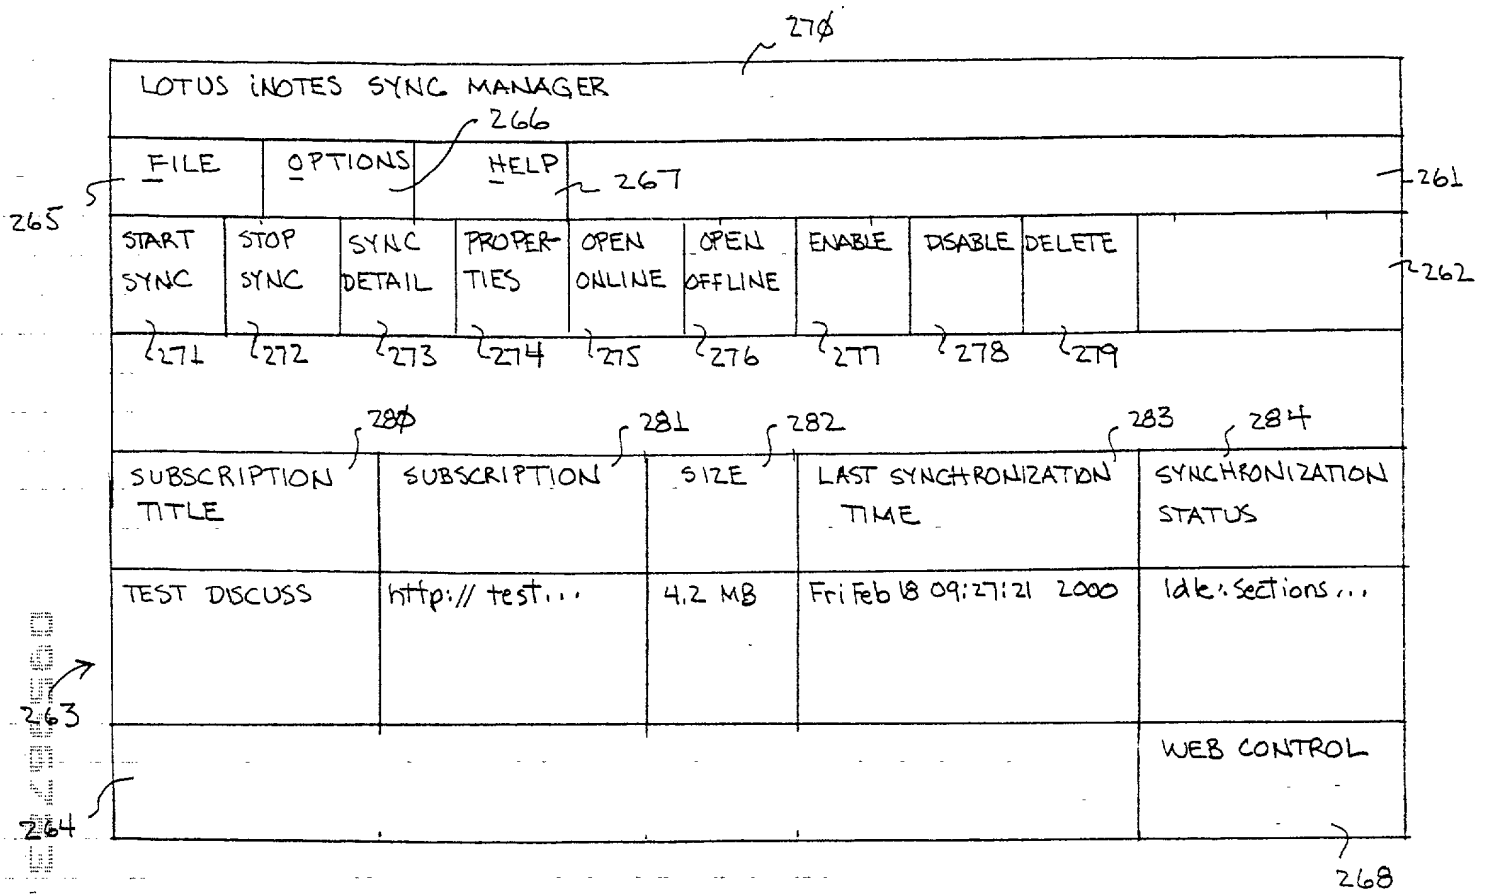 270
LOTUS iNOTES SYNC MANAGER
266
FILE OPTIONS HELP
267
261
265
START SYNC
STOP SYNC
SYNC DETAIL
PROPER-
TIES
OPEN ONLINE
OPEN OFFLINE
ENABLE
DISABLE
DELETE
262
271 272 273 274 275 276 277 278 279
280 281 282 283 284
SUBSCRIPTION
TITLE
SUBSCRIPTION
SIZE
LAST SYNCHRONIZATION
TIME
SYNCHRONIZATION
STATUS
TEST DISCUSS http://test... 4.2 MB Fri Feb 18 09:27:21 2000 Idle: sections...
263
WEB CONTROL
264
268